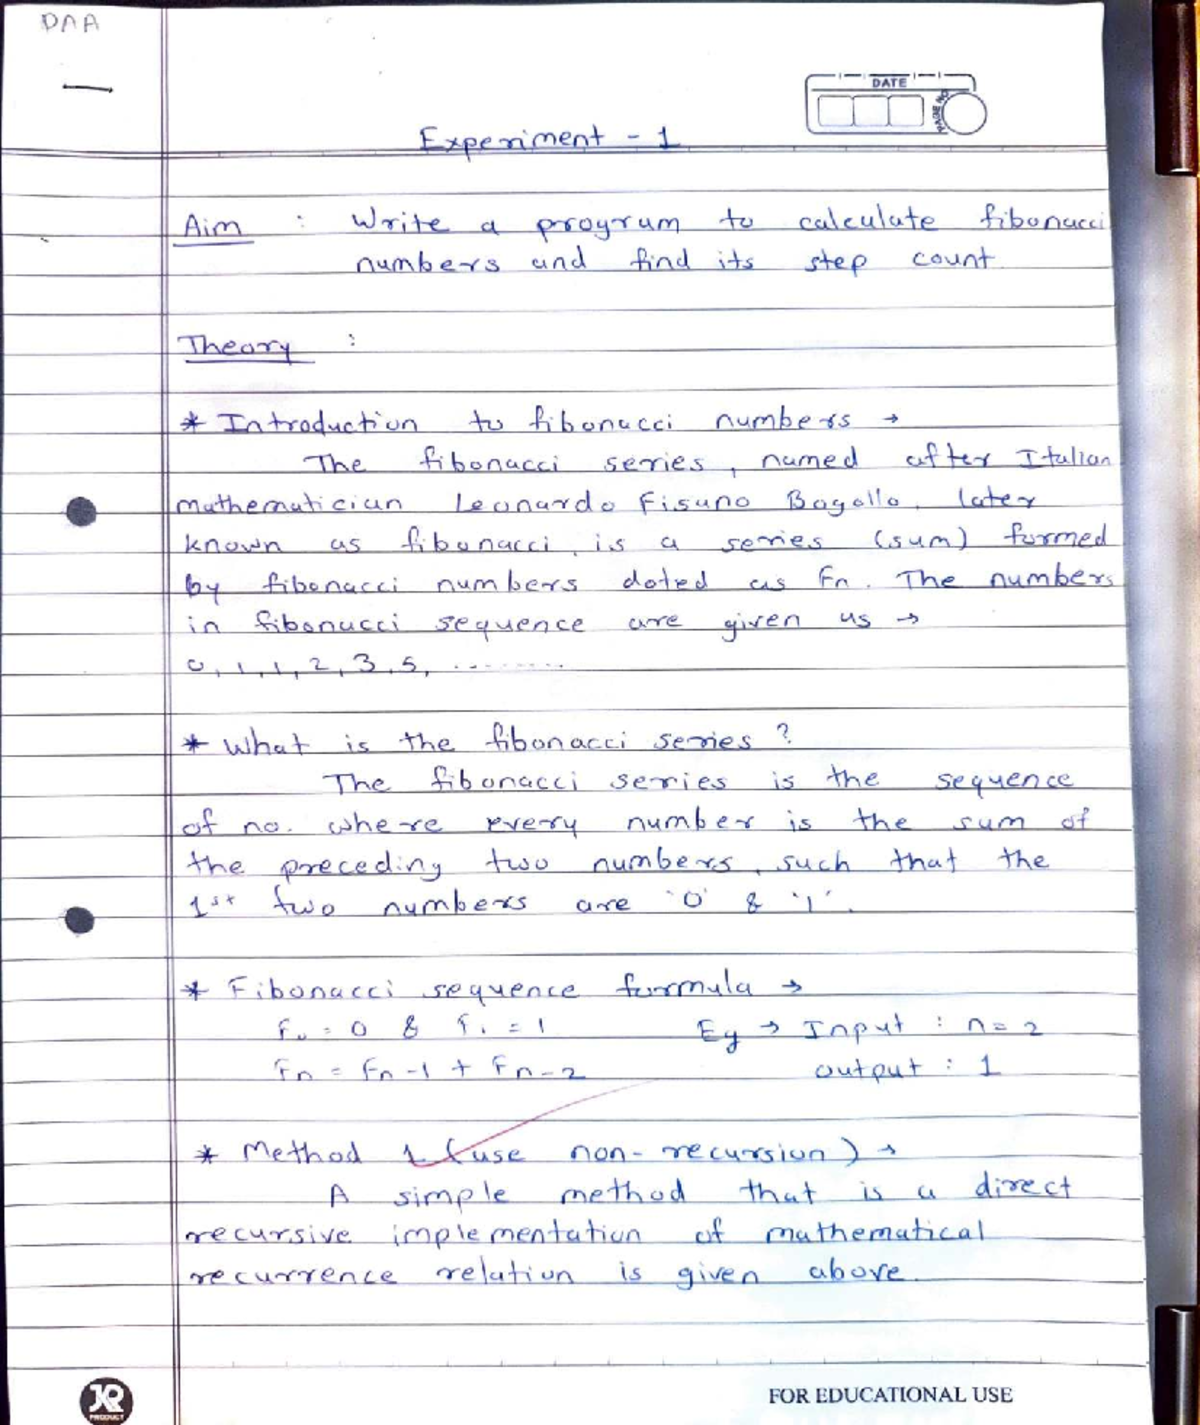 DAA
DATE
PAGE NO.
Experiment - 1
Aim : Write a program to calculate fibonacci
numbers and find its step count
Theory :
* Introduction to fibonacci numbers →
The fibonacci series, named after Italian
mathematician Leonardo Fisano Bogollo, later
known as fibonacci, is a series (sum) formed
by fibonacci numbers doted as Fn. The numbers
in fibonacci sequence are given as →
0, 1, 1, 2, 3, 5, ..........
* What is the fibonacci series ?
The fibonacci series is the sequence
of no. where every number is the sum of
the preceding two numbers, such that the
1st two numbers are '0' & '1'.
* Fibonacci sequence formula →
F0 = 0 & F1 = 1 Eg → Input : n = 2
Fn = Fn-1 + Fn-2 output : 1
* Method 1 (use non-recursion) →
A simple method that is a direct
recursive implementation of mathematical
recurrence relation is given above.
JR
PRODUCT
FOR EDUCATIONAL USE